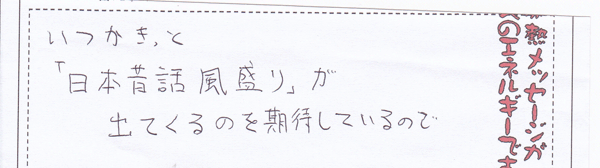 いつかきっと
「日本昔話風盛り」が
出てくるのを期待しているので
熱メッセージが
のエネルギーです